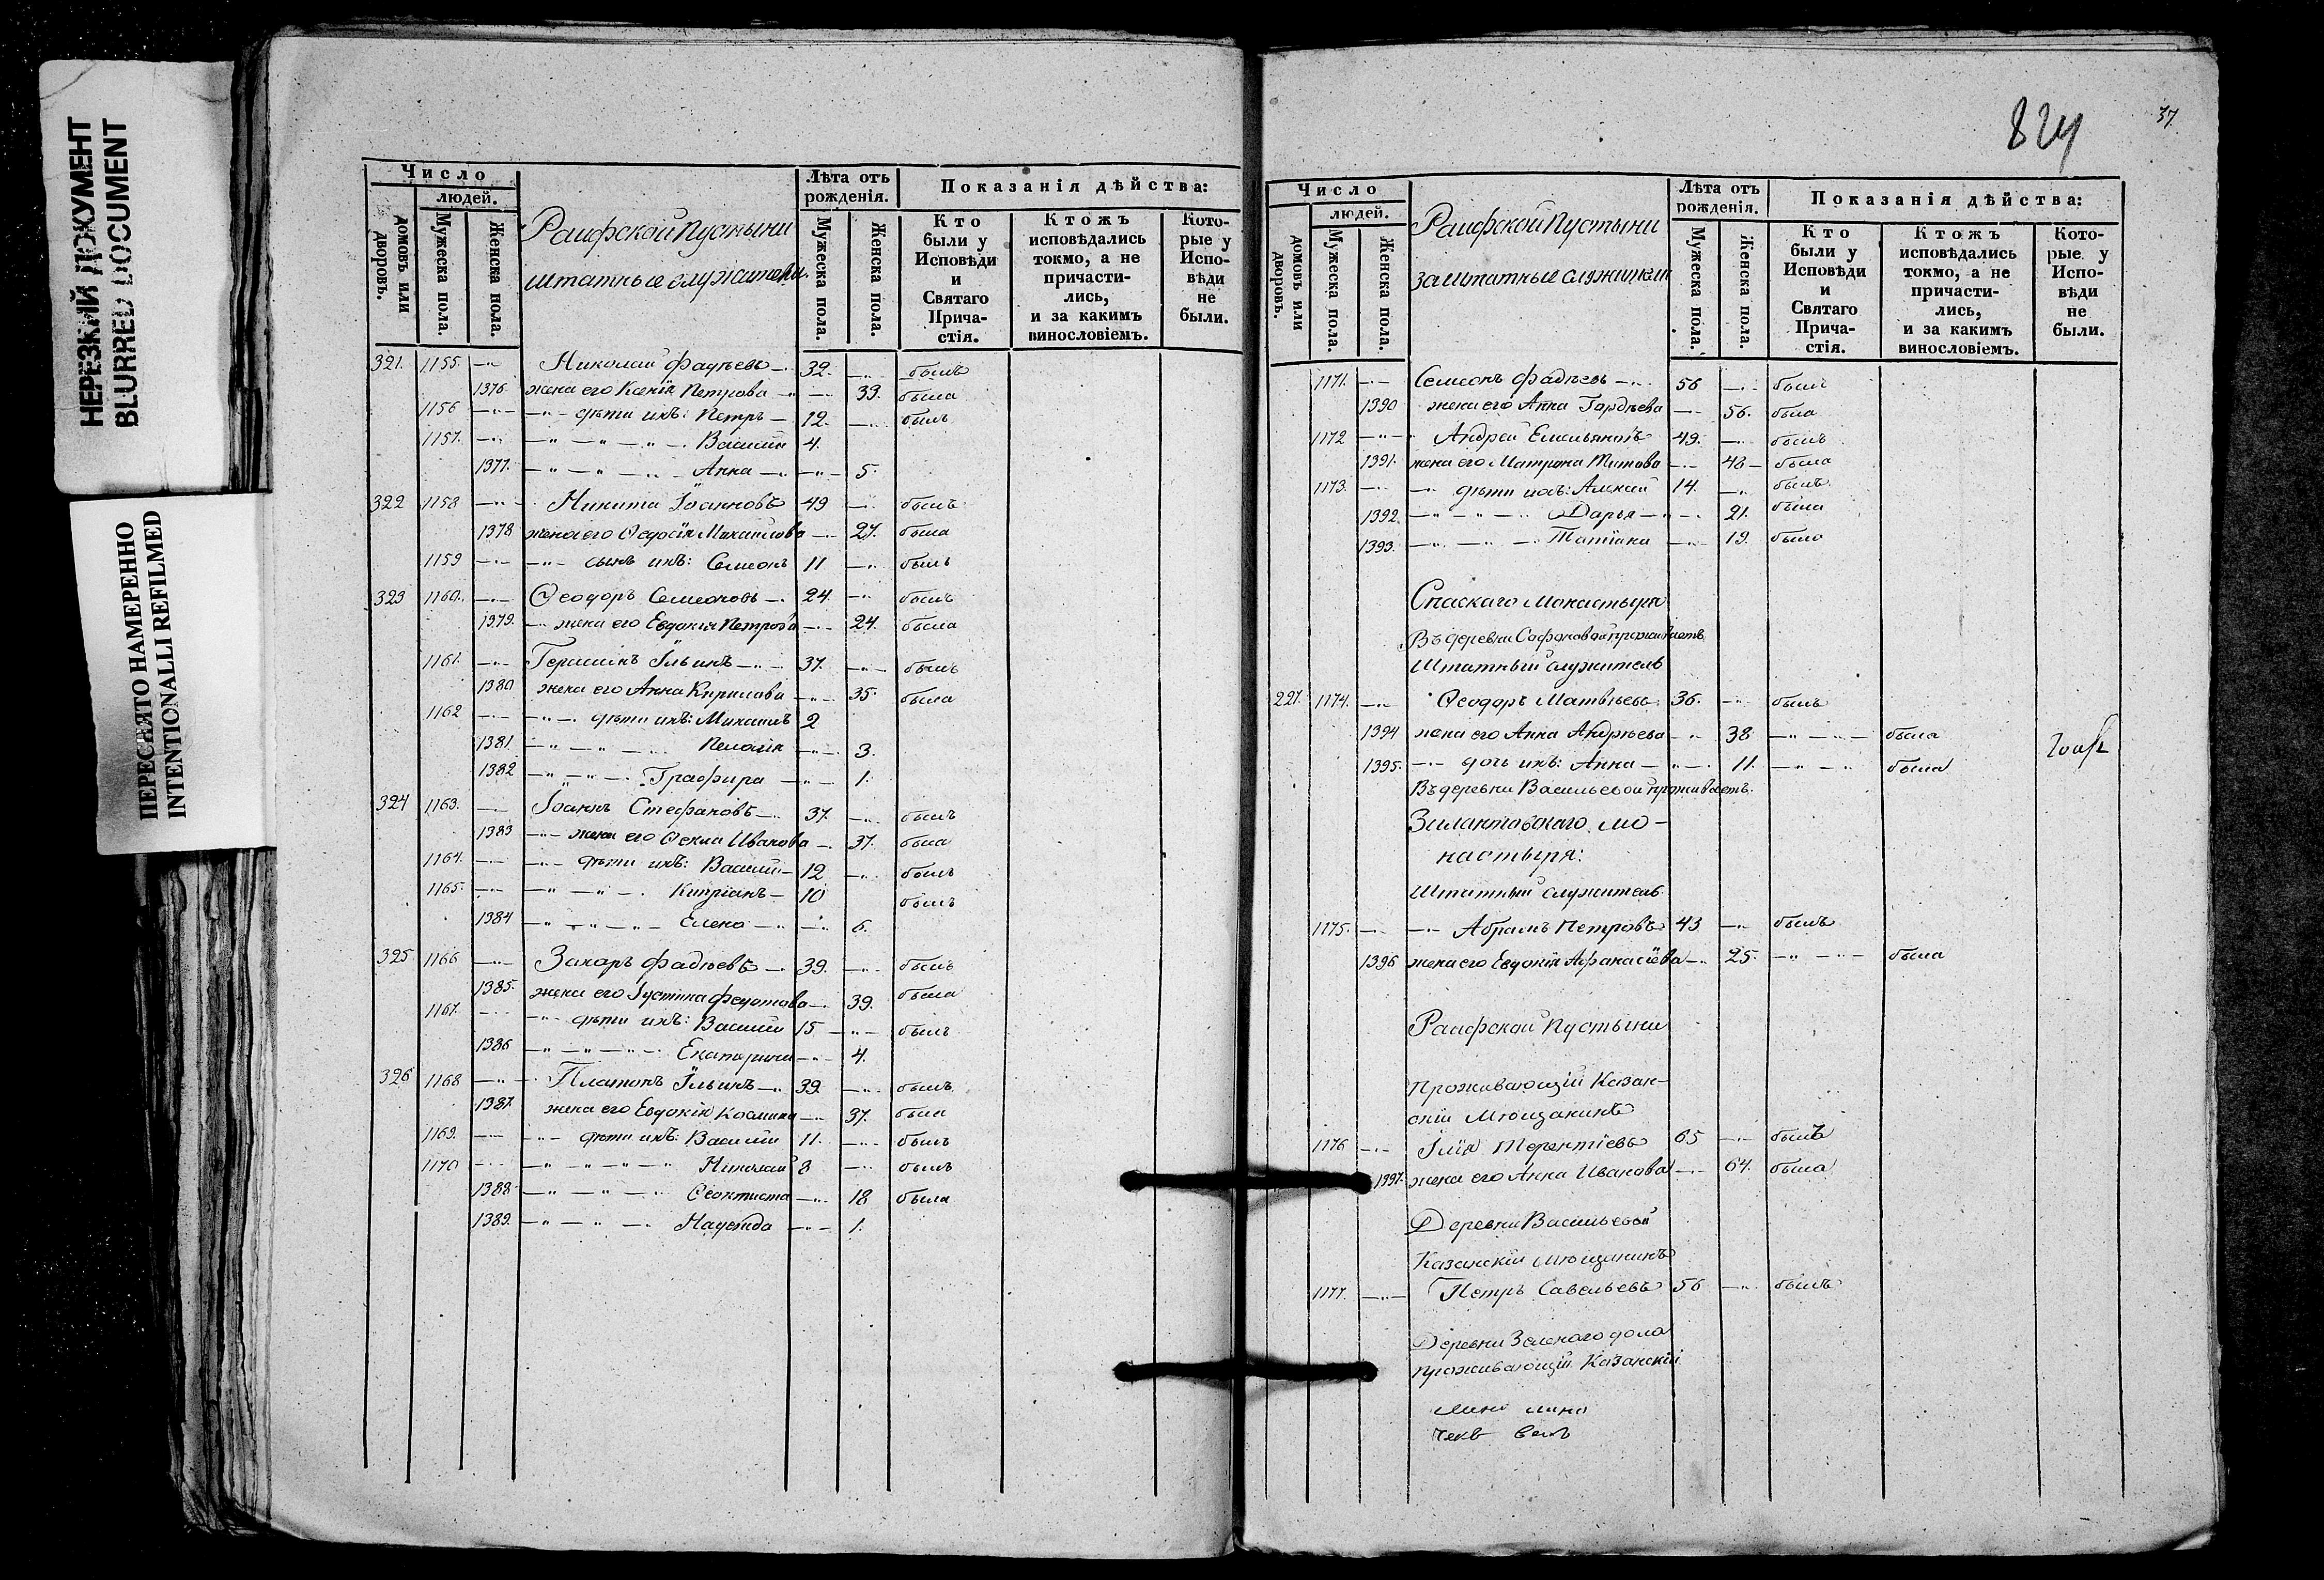 НЕРЕЗКИЙ ДОКУМЕНТ
BLURRED DOCUMENT
ПЕРЕСНЯТО НАМЕРЕННО
INTENTIONALLI REFILMED
Число
людей.
домовъ или дворовъ.
Мужеска пола.
Женска пола.
Раифской Пустыни
штатные служители.
Лѣта отъ рожденія.
Мужеска пола.
Женска пола.
Показанія дѣйства:
Кто были у Исповѣди и Святаго Прича-стія.
Ктожъ исповѣдались токмо, а не причасти-лись, и за какимъ винословіемъ.
Кото-рые у Испо-вѣди не были.
321. 1155. Николай Фадѣевъ 32. былъ
1376. жена его Ксенія Петрова 33. была
1156 дѣти ихъ: Петръ 12. былъ
1157. Василій 4.
1377. Анна 5.
322 1158 Никита Іоанновъ 49 былъ
1378 жена его Ѳедосія Михаилова 27. была
1159 сынъ ихъ: Семенъ 11 былъ
323 1160. Ѳеодоръ Семеновъ 24. былъ
1379. жена его Евдокія Петрова 24. была
1161. Герасимъ Ильинъ 37. былъ
1380 жена его Анна Кирилова 35. была
1162 дѣти ихъ: Михаилъ 2
1381 Пелагія 3.
1382 Графира 1.
324 1163. Іоаннъ Стефановъ 37. былъ
1383 жена его Ѳекла Иванова 37. была
1164. дѣти ихъ: Василій 12 былъ
1165. Кипріанъ 10 былъ
1384 Елена 6.
325 1166 Захаръ Фадѣевъ 39. былъ
1385. жена его Іустина Федотова 39. была
1167. дѣти ихъ: Василій 15 былъ
1386 Екатерина 4.
326 1168 Платонъ Ильинъ 39. былъ
1387. жена его Евдокія Космина 37. была
1169. дѣти ихъ: Василій 11. былъ
1170 Николай 8 былъ
1388 Ѳеоктиста 18 была
1389. Надежда 1.
824
37.
Число
людей.
домовъ или дворовъ.
Мужеска пола.
Женска пола.
Раифской Пустыни
заштатные служители
Лѣта отъ рожденія.
Мужеска пола.
Женска пола.
Показанія дѣйства:
Кто были у Исповѣди и Святаго Прича-стія.
Ктожъ исповѣдались токмо, а не причасти-лись, и за какимъ винословіемъ.
Кото-рые у Испо-вѣди не были.
1171. Семенъ Фадѣевъ 56 былъ
1390 жена его Анна Гордѣева 56. была
1172 Андрей Емельяновъ 49. былъ
1391. жена его Матрона Титова 48 была
1173. дѣти ихъ: Алексѣй 14. былъ
1392. Дарья 21. была
1393. Татіана 19. была
Спаскаго Монастыря
Въ деревни Сафоновой проживаетъ
Штатный служитель
227. 1174. Ѳеодоръ Матвѣевъ 36. былъ
1394 жена его Анна Андрѣева 38 была
1395. дочь ихъ: Анна 11. была
Въ деревни Васильевой проживаетъ
Зилантовскаго мо-
настыря:
Штатный служитель
1175. Абрамъ Петровъ 43 былъ
1396 жена его Евдокія Афанасіева 25. была
Раифской Пустыни
Проживающій Казан-
скій Мѣщанинъ
1176 Илія Терентіевъ 65 былъ
1397. жена его Анна Иванова 64. была
Деревни Васильевой
Казанскій мѣщанинъ
1177. Петръ Савельевъ 56 былъ
Деревни Зеленаго дола
проживающій Казанскій